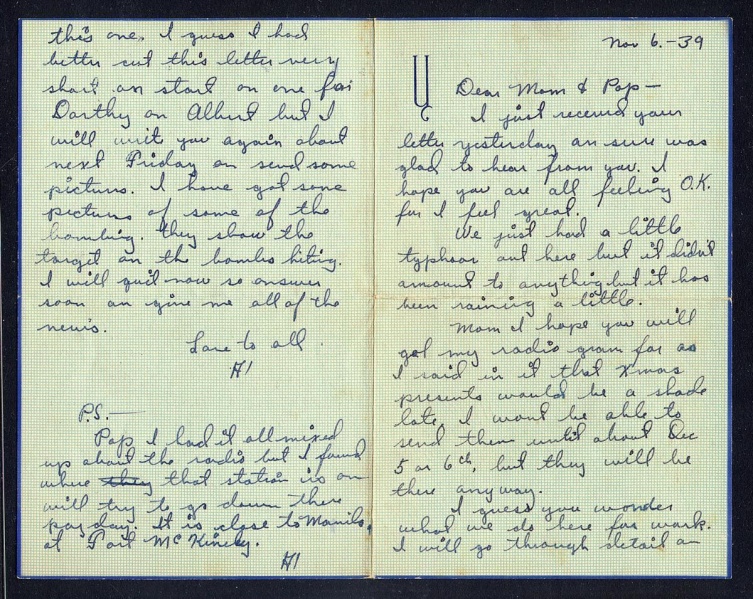 Nov 6.-39
Dear Mom & Pop—
I just received your
letter yesterday an sure was
glad to hear from you. I
hope you are all feeling O.K.
for I feel great.
We just had a little
typhoon out here but it didn't
amount to anything but it has
been raining a little.
Mom I hope you will
get my radio gram for as
I said in it that Xmas
presents would be a shade
late. I wont be able to
send them until about Dec
5 or 6th, but they will be
there anyway.
I guess you wonder
what we do here for work.
I will go through detail an
this one. I guess I had
better cut this letter very
short an start on one for
Dorthy an Albert but I
will writ you again about
next Friday an send some
picturs. I have got some
picturs of some of the
bombing. they show the
target an the bombs hiting.
I will quit now so answer
soon an give me all of the
news.
Love to all.
Al
P.S.—
Pop I had it all mixed
up about the radio but I found
where they that station is an
will try to go down there
payday. It is close to Manila,
at Fort McKinley.
Al